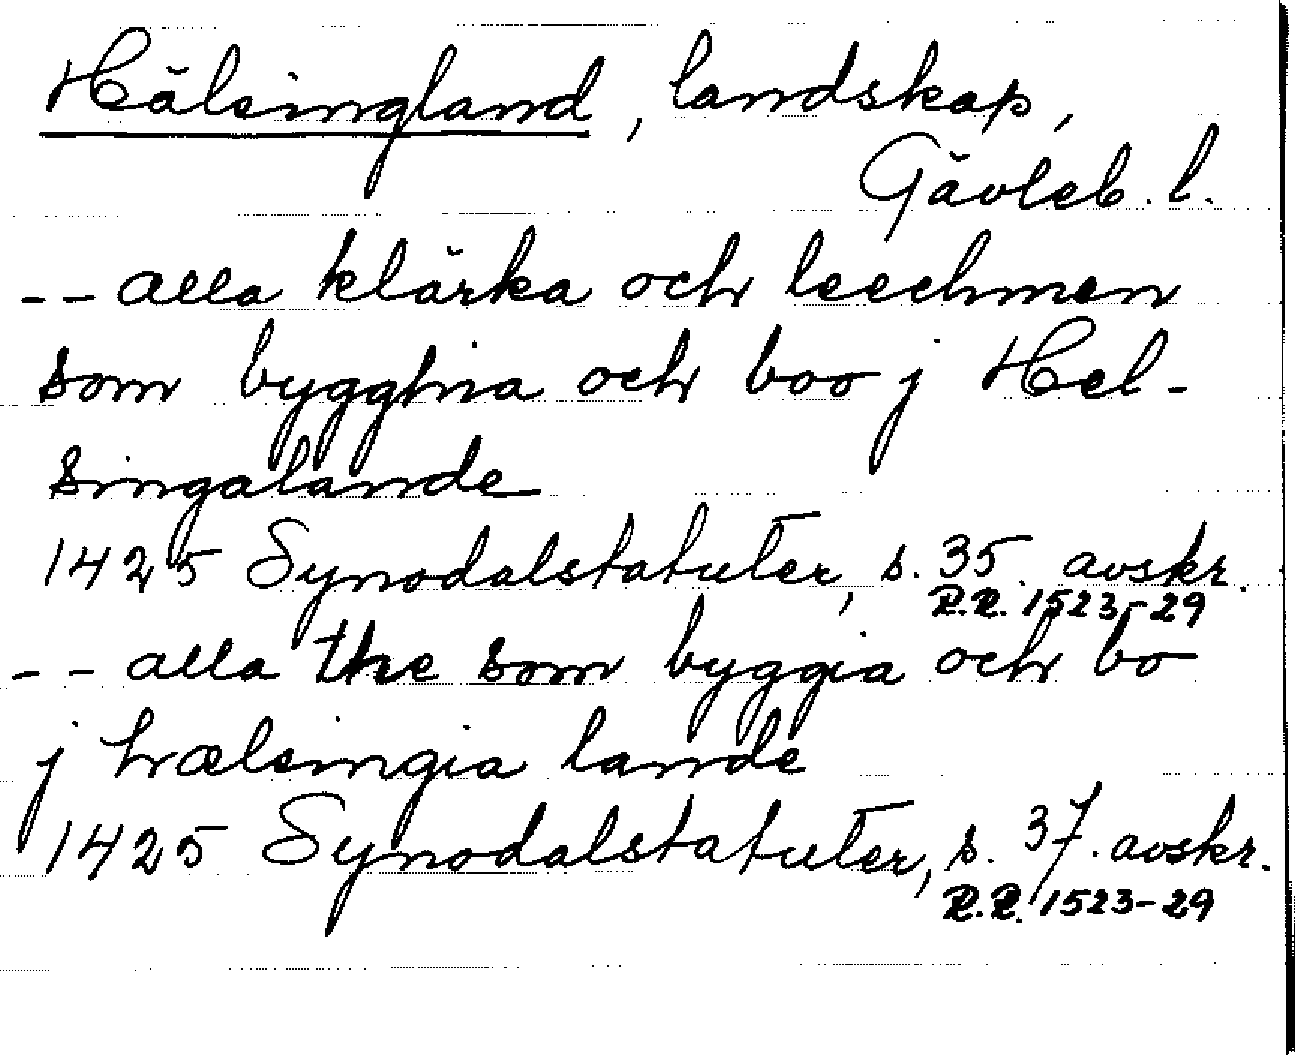 Hälsingland, landskap,
Gävleb. l.
-- alla klärka och leechmen
som bygghia och boo j Hel-
singalande
1425 Synodalstatuter, s. 35. avskr.
R.R. 1523-29
-- alla the som byggia och bo
j hælsingia lande
1425 Synodalstatuter, s. 37. avskr.
R.R. 1523-29